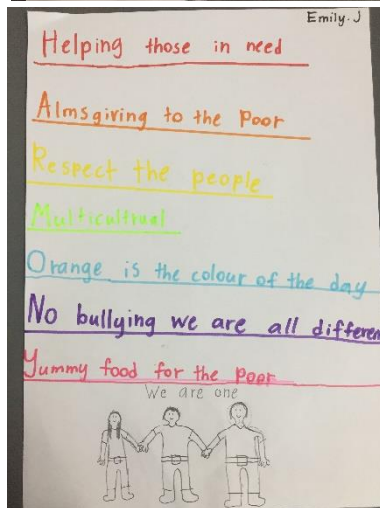 Emily.J
Helping those in need
Almsgiving to the Poor
Respect the people
Multicultrual
Orange is the colour of the day
No bullying we are all differen
Yummy food for the poor
We are one